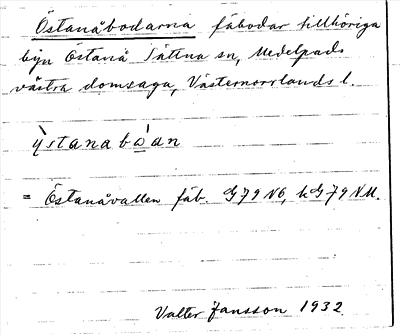 Östanåbodarna fäbodar tillhöriga
byn Östanå Sättna sn, Medelpads
västra domsaga, Västernorrlands l.
ỳstanabòan
= Östanåvallen fäb. G79 NÖ, hG79 NM.
Valter Jansson 1932